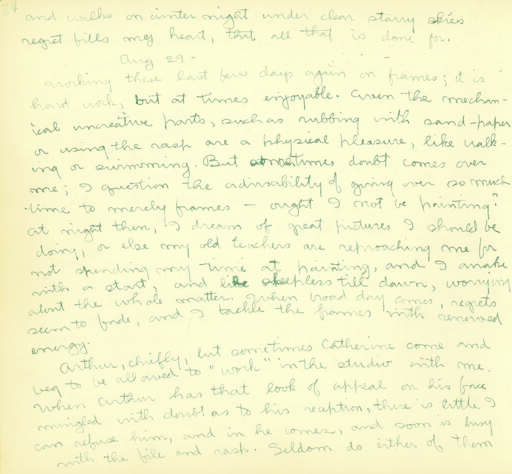 and walks on winter night under clear starry skies
regret fills my heart, that all that is done for.
Aug 29 -
Working these last few days again on frames; it is
hard work, but at times enjoyable. Even the mechan-
ical uncreative parts, such as rubbing with sand-paper
or using the rasp are a physical pleasure, like walk-
ing or swimming. But sometimes doubt comes over
me; I question the advisability of giving over so much
time to merely frames — ought I not be painting?
At night then, I dream of great pictures I should be
doing, or else my old teachers are reproaching me for
not spending my time at painting, and I awake
with a start, and lie sleepless till dawn, worrying
about the whole matter. When broad day comes, regrets
seem to fade, and I tackle the frames with renewed
energy.
Arthur, chiefly, but sometimes Catherine come and
beg to be allowed to "work" in the studio with me.
When Arthur has that look of appeal on his face
mingled with doubt as to his reception, there is little I
can refuse him, and in he comes, and soon is busy
with the file and rasp. Seldom do either of them